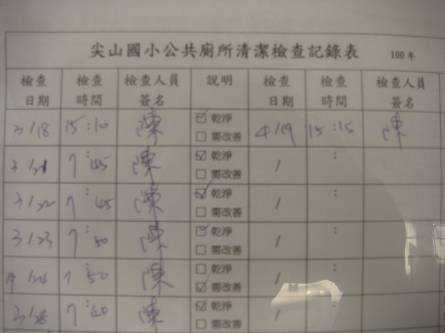 尖山國小公共廁所清潔檢查記錄表 100年
檢查日期 檢查時間 檢查人員簽名 說明 檢查日期 檢查時間 檢查人員簽名
3/18 15:10 陳 ☑乾淨 □需改善 4/19 15:15 陳
3/21 7:45 陳 ☑乾淨 □需改善 / :
3/22 7:45 陳 ☑乾淨 □需改善 / :
3/23 7:50 陳 ☑乾淨 □需改善 / :
/24 7:50 陳 □乾淨 ☑需改善 / :
3/25 7:40 陳 ☑乾淨 □需改善 / :